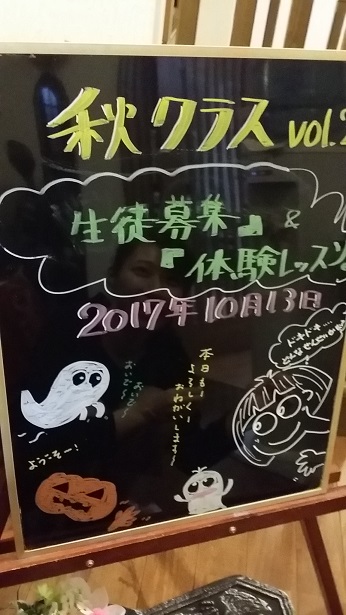 秋クラス vol.2
生徒募集』&
『体験レッスン
2017年10月13日
ドキドキ…
どんなせんせいかな
本日も〜
よろしく〜
おねがいします〜
おいで〜
おいで〜
ようこそー!